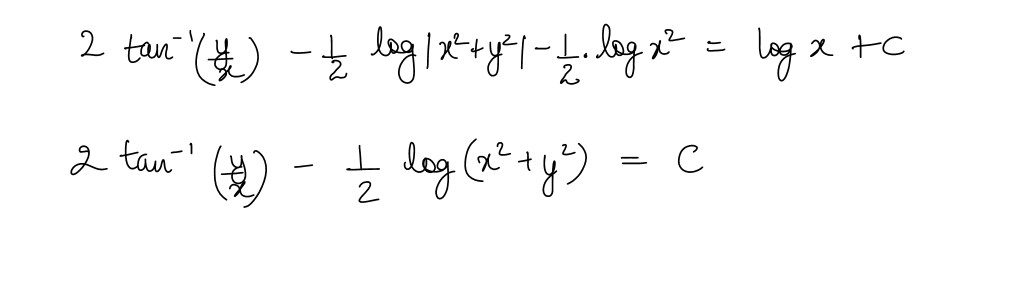 2 tan⁻¹(y/x) - 1/2 log|x²+y²| - 1/2 . log x² = log x + C
2 tan⁻¹(y/x) - 1/2 log(x²+y²) = C